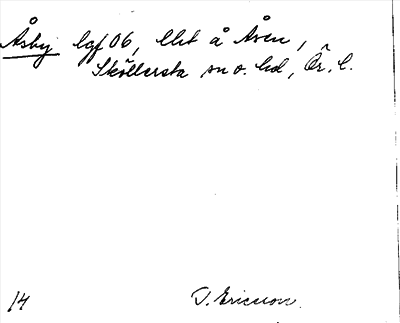 Åsby lgf 06, blst å Åsen,
Sköllersta sn o. hd, Ör. l.
14 T. Ericsson.